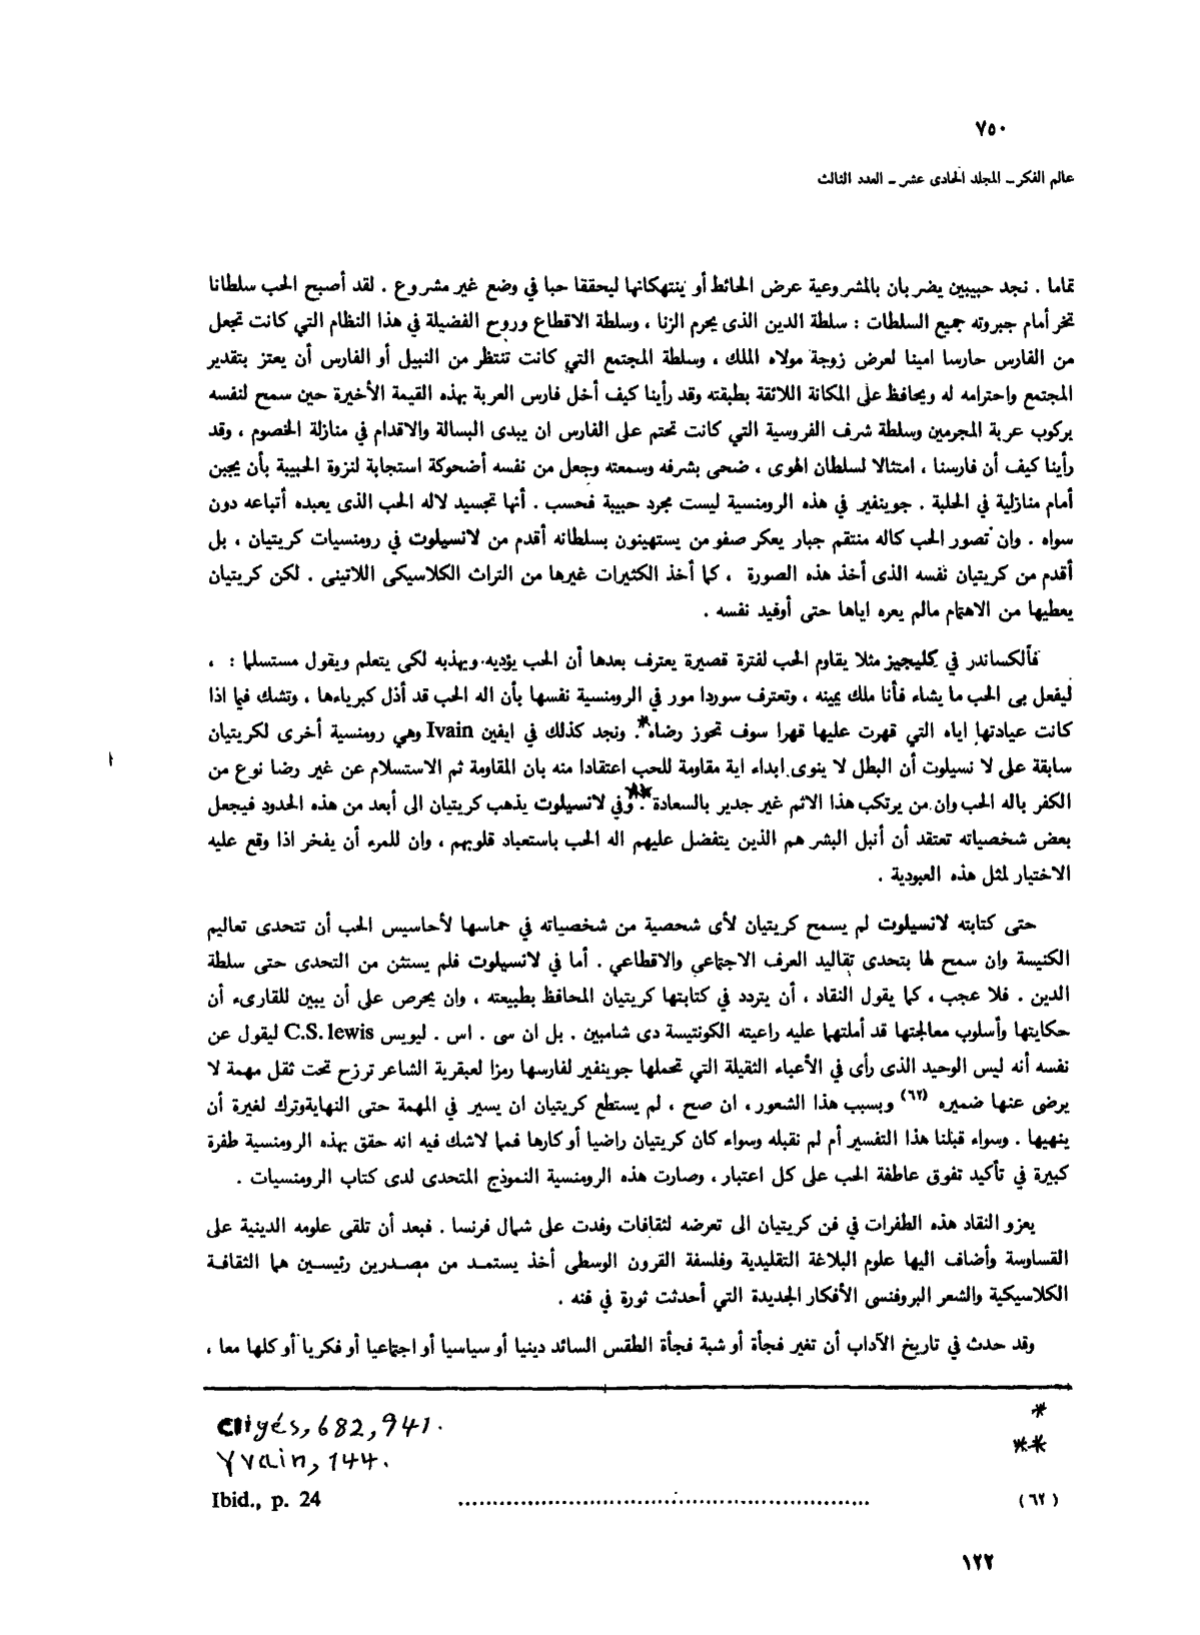 ٧٥٠
عالم الفكر - المجلد الحادى عشر - العدد الثالث
تماما . نجد حبيبين يضربان بالمشروعية عرض الحائط أو ينتهكانها ليحققا حبا في وضع غير مشروع . لقد أصبح الحب سلطانا
تخر أمام جبروته جميع السلطات : سلطة الدين الذى يحرم الزنا ، وسلطة الاقطاع وروح الفضيلة في هذا النظام التي كانت تجعل
من الفارس حارسا امينا لعرض زوجة مولاه الملك ، وسلطة المجتمع التي كانت تنتظر من النبيل أو الفارس أن يعتز بتقدير
المجتمع واحترامه له ويحافظ على المكانة اللائقة بطبقته وقد رأينا كيف أخل فارس العربة بهذه القيمة الأخيرة حين سمح لنفسه
بركوب عربة المجرمين وسلطة شرف الفروسية التي كانت تحتم على الفارس ان يبدى البسالة والاقدام في منازلة الخصوم ، وقد
رأينا كيف أن فارسنا ، امتثالا لسلطان الهوى ، ضحى بشرفه وسمعته وجعل من نفسه أضحوكة استجابة لنزوة الحبيبة بأن يجبن
أمام منازلية في الحلبة . جوينفير في هذه الرومنسية ليست مجرد حبيبة فحسب . أنها تجسيد لاله الحب الذى يعبده أتباعه دون
سواه . وان تصور الحب كاله منتقم جبار يعكر صفو من يستهينون بسلطانه أقدم من لانسيلوت في رومنسيات كريتيان ، بل
أقدم من كريتيان نفسه الذى أخذ هذه الصورة ، كما أخذ الكثيرات غيرها من التراث الكلاسيكى اللاتينى . لكن كريتيان
يعطيها من الاهتمام مالم يعره اياها حتى أوفيد نفسه .
فألكساندر في كليجيز مثلا يقاوم الحب لفترة قصيرة يعترف بعدها أن الحب يؤديه ويهذبه لكى يتعلم ويقول مستسلما : ،
ليفعل بى الحب ما يشاء فأنا ملك يمينه ، وتعترف سوردا مور في الرومنسية نفسها بأن اله الحب قد أذل كبرياءها ، وتشك فيما اذا
كانت عيادتها اياه التي قهرت عليها قهرا سوف تحوز رضاه* . ونجد كذلك في ايفين Ivain وهي رومنسية أخرى لكريتيان
سابقة على لا نسيلوت أن البطل لا ينوى ابداء اية مقاومة للحب اعتقادا منه بان المقاومة ثم الاستسلام عن غير رضا نوع من
الكفر باله الحب وان من يرتكب هذا الاثم غير جدير بالسعادة** . وفي لانسيلوت يذهب كريتيان الى أبعد من هذه الحدود فيجعل
بعض شخصياته تعتقد أن أنبل البشر هم الذين يتفضل عليهم اله الحب باستعباد قلوبهم ، وان للمرء أن يفخر اذا وقع عليه
الاختيار لمثل هذه العبودية .
حتى كتابته لانسيلوت لم يسمح كريتيان لأى شحصية من شخصياته في حماسها لأحاسيس الحب أن تتحدى تعاليم
الكنيسة وان سمح لها بتحدى تقاليد العرف الاجتماعي والاقطاعي . أما في لانسيلوت فلم يستثن من التحدى حتى سلطة
الدين . فلا عجب ، كما يقول النقاد ، أن يتردد في كتابتها كريتيان المحافظ بطبيعته ، وان يحرص على أن يبين للقارىء أن
حكايتها وأسلوب معالجتها قد أملتهما عليه راعيته الكونتيسة دى شامبين . بل ان سى . اس . ليويس C.S. lewis ليقول عن
نفسه أنه ليس الوحيد الذى رأى في الأعباء الثقيلة التي تحملها جوينفير لفارسها رمزا لعبقرية الشاعر ترزح تحت ثقل مهمة لا
يرضى عنها ضميره (٦٢) وبسبب هذا الشعور ، ان صح ، لم يستطع كريتيان ان يسير في المهمة حتى النهايةوترك لغيرة أن
ينهيها . وسواء قبلنا هذا التفسير أم لم نقبله وسواء كان كريتيان راضيا أو كارها فمما لاشك فيه انه حقق بهذه الرومنسية طفرة
كبيرة في تأكيد تفوق عاطفة الحب على كل اعتبار ، وصارت هذه الرومنسية النموذج المتحدى لدى كتاب الرومنسيات .
يعزو النقاد هذه الطفرات في فن كريتيان الى تعرضه لثقافات وفدت على شمال فرنسا . فبعد أن تلقى علومه الدينية على
القساوسة وأضاف اليها علوم البلاغة التقليدية وفلسفة القرون الوسطى أخذ يستمد من مصدرين رئيسين هما الثقافة
الكلاسيكية والشعر البروفنسى الأفكار الجديدة التي أحدثت ثورة في فنه .
وقد حدث في تاريخ الآداب أن تغير فجأة أو شبة فجأة الطقس السائد دينيا أو سياسيا أو اجتماعيا أو فكريا أو كلها معا ،
* Cligés, 682, 941.
** Yvain, 144.
(٦٢) .......... Ibid., p. 24
١٢٢